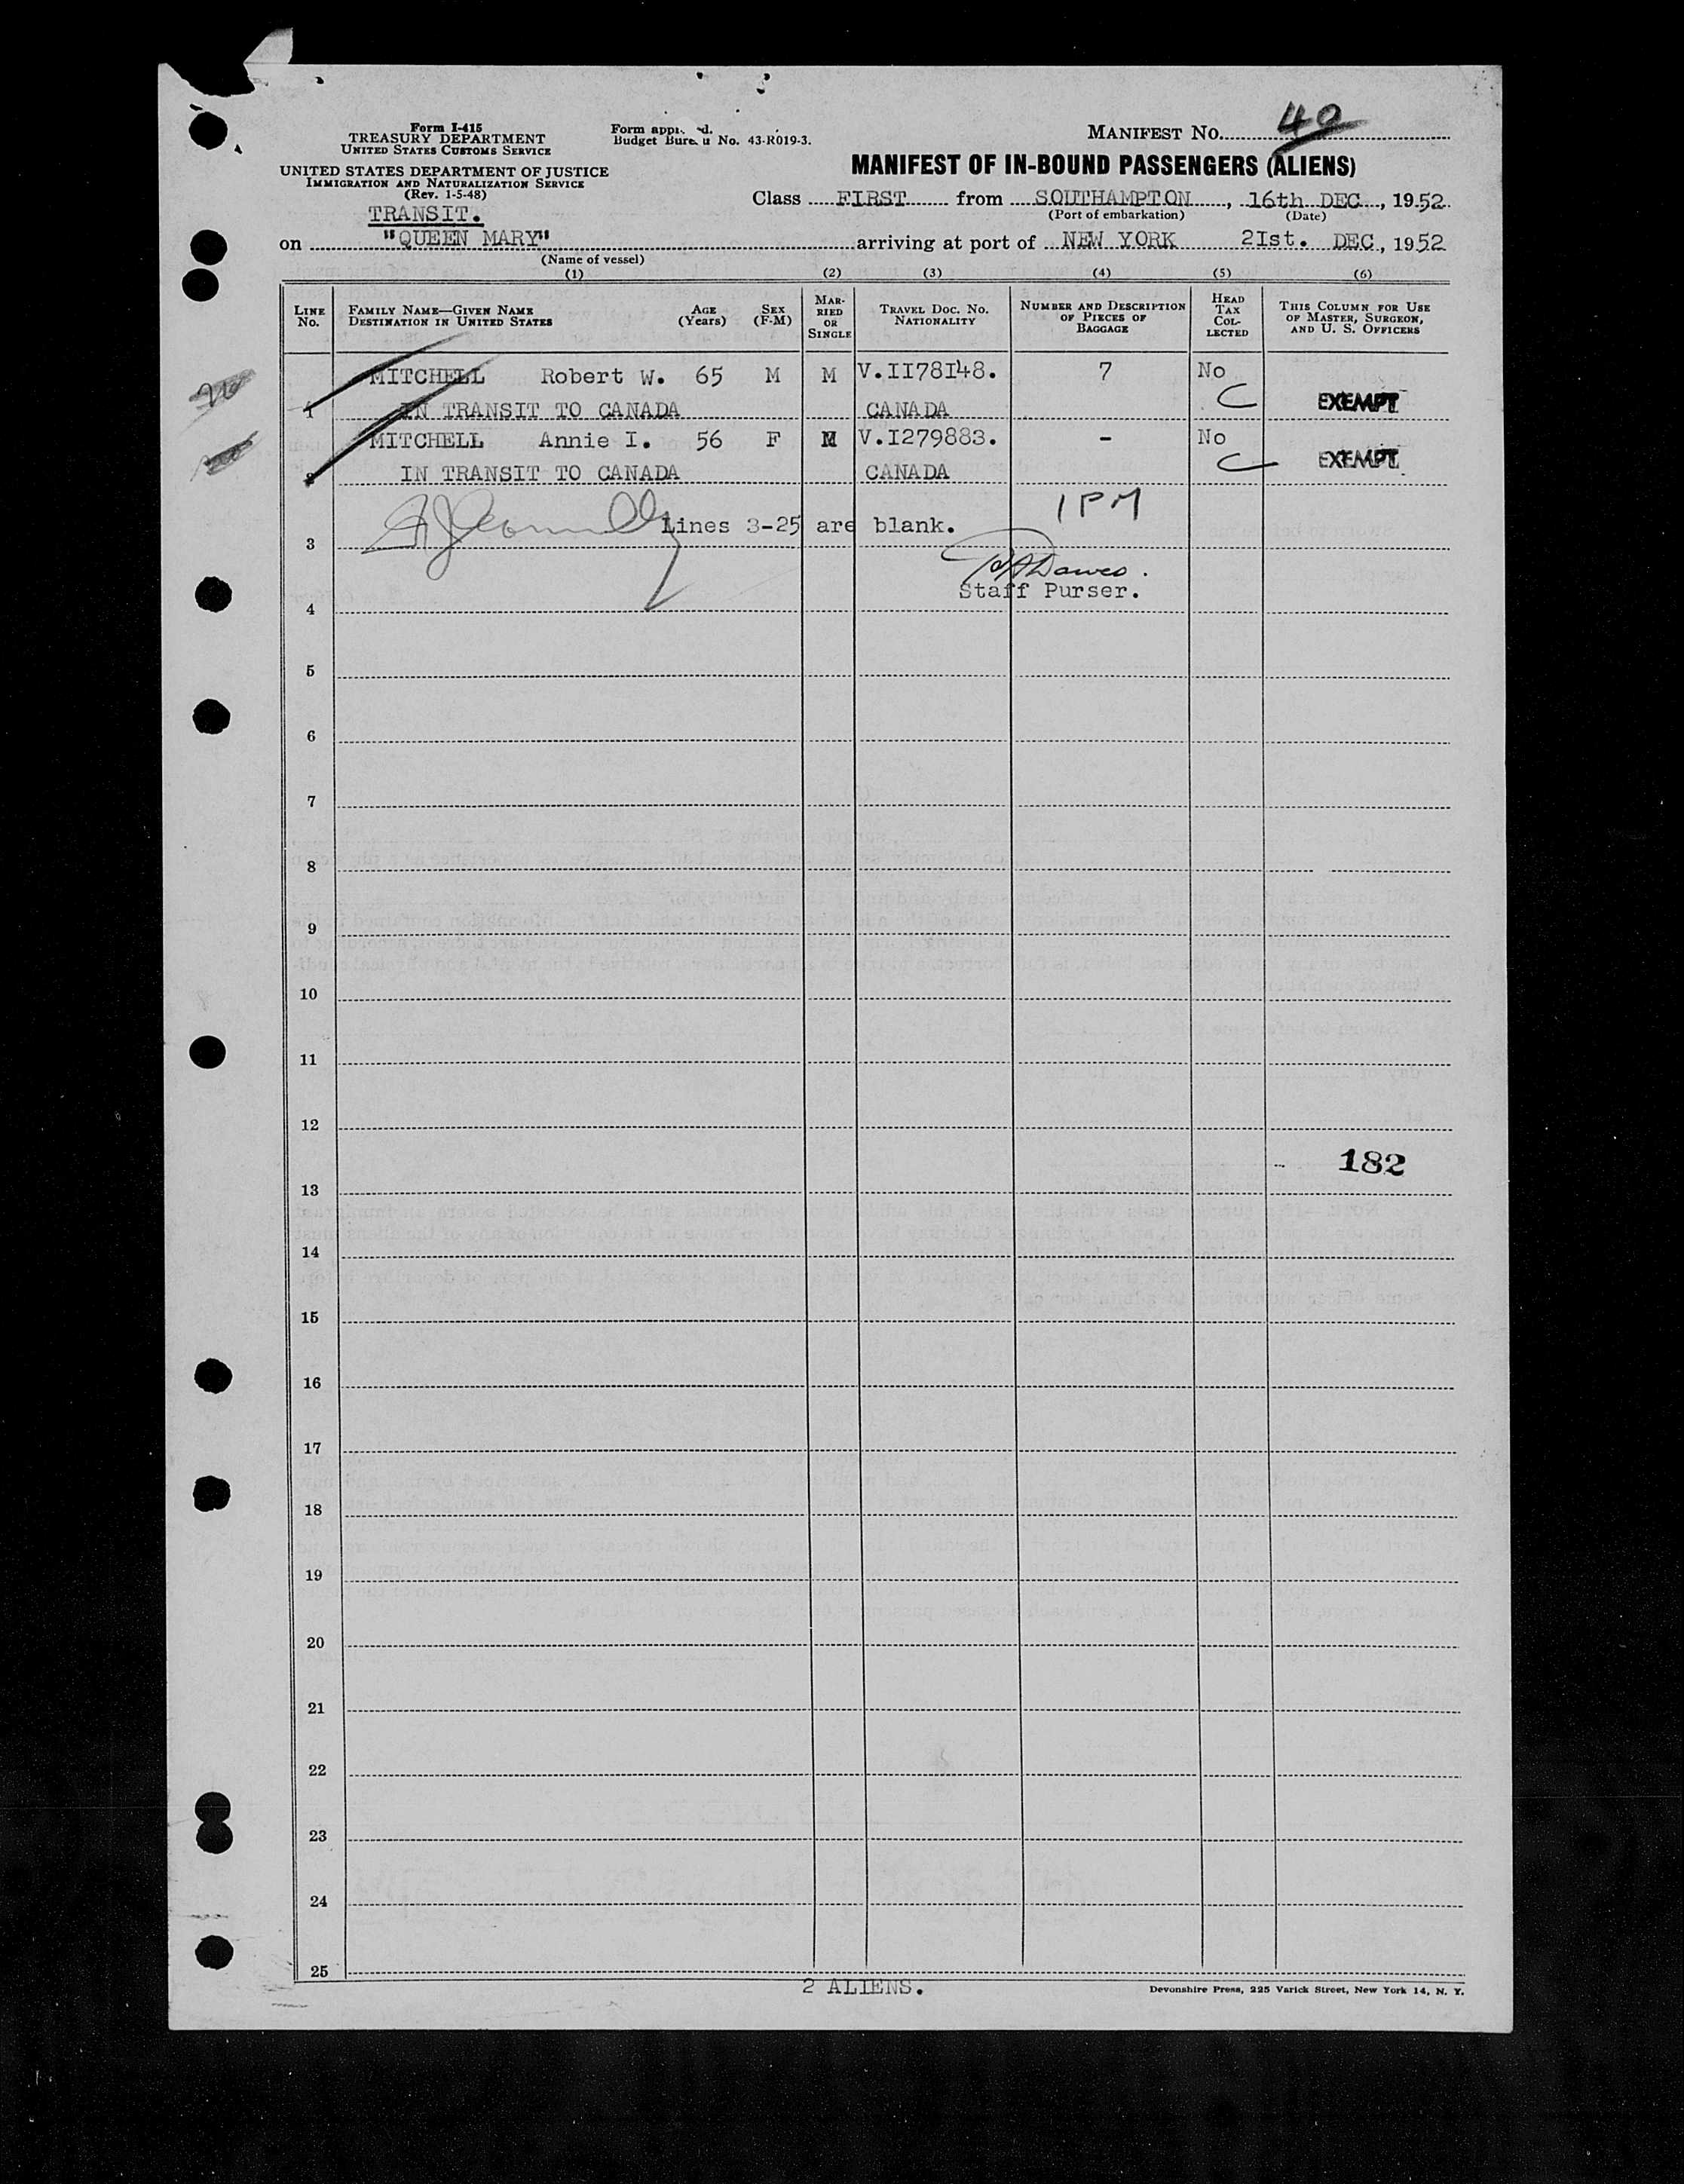 Form I-415
TREASURY DEPARTMENT
UNITED STATES CUSTOMS SERVICE
UNITED STATES DEPARTMENT OF JUSTICE
IMMIGRATION AND NATURALIZATION SERVICE
(Rev. 1-5-48)
TRANSIT.
Form
Budget No. 43-R019-3.
MANIFEST No. 40
MANIFEST OF IN-BOUND PASSENGERS (ALIENS)
Class FIRST from SOUTHAMPTON, 16th DEC, 1952
(Port of embarkation) (Date)
on "QUEEN MARY" arriving at port of NEW YORK 2Ist. DEC, 1952
(Name of vessel)
(1) (2) (3) (4) (5) (6)
LINE No. FAMILY NAME—GIVEN NAME DESTINATION IN UNITED STATES AGE (Years) SEX (F-M) MARRIED OR SINGLE TRAVEL DOC. NO. NATIONALITY NUMBER AND DESCRIPTION OF PIECES OF BAGGAGE HEAD TAX COLLECTED THIS COLUMN FOR USE OF MASTER, SURGEON, AND U. S. OFFICERS
MITCHELL Robert W. 65 M M V.II78I48. 7 No
1 IN TRANSIT TO CANADA CANADA C EXEMPT
MITCHELL Annie I. 56 F M V.I279883. - No
2 IN TRANSIT TO CANADA CANADA C EXEMPT
1 PM
Lines 3-25 are blank.
3
Staff Purser.
4
5
6
7
8
9
10
11
12
182
13
14
15
16
17
18
19
20
21
22
23
24
25
2 ALIENS.
Devonshire Press, 225 Varick Street, New York 14, N. Y.